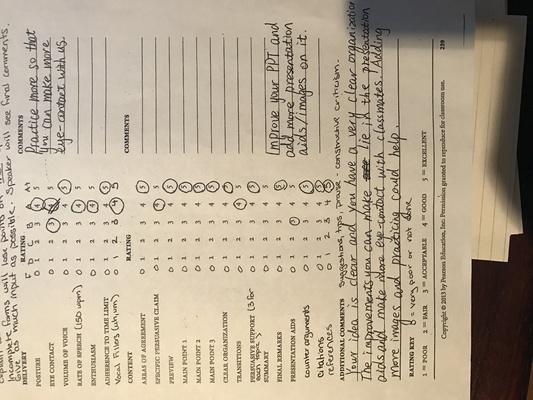 Incomplete forms will lose points on
Give as much input as possible. Speaker will see final comments.
F D C B A A+
DELIVERY RATING COMMENTS
POSTURE 0 1 2 3 4 5
EYE CONTACT 0 1 2 3 4 5
VOLUME OF VOICE 0 1 2 3 4 5
RATE OF SPEECH (150 wpm) 0 1 2 3 4 5
ENTHUSIASM 0 1 2 3 4 5
ADHERENCE TO TIME LIMIT 0 1 2 3 4 5
Vocal Fillers (uh, um) 0 1 2 3 4 5
Practice more so that
you can make more
eye-contact with us.
CONTENT RATING COMMENTS
AREAS OF AGREEMENT 0 1 2 3 4 5
SPECIFIC PERSUASIVE CLAIM 0 1 2 3 4 5
PREVIEW 0 1 2 3 4 5
MAIN POINT 1 0 1 2 3 4 5
MAIN POINT 2 0 1 2 3 4 5
MAIN POINT 3 0 1 2 3 4 5
CLEAR ORGANIZATION 0 1 2 3 4 5
TRANSITIONS 0 1 2 3 4 5
PERSUASIVE SUPPORT (3 for 0 1 2 3 4 5
SUMMARY 0 1 2 3 4 5
FINAL REMARKS 0 1 2 3 4 5
PRESENTATION AIDS 0 1 2 3 4 5
counter arguments 0 1 2 3 4 5
citations 0 1 2 3 4 5
references
Improve your PPT and
add more presentation
aids/images on it.
ADDITIONAL COMMENTS Suggestions, tips, praise - constructive criticism.
Your idea is clear and you have a very clear organization
The improvements you can make lie in the presentation
aids and make more eye-contact with classmates. Adding
more images and practicing could help.
RATING KEY 0 = very poor or not done
1 = POOR 2 = FAIR 3 = ACCEPTABLE 4 = GOOD 5 = EXCELLENT
Copyright © 2013 by Pearson Education, Inc. Permission granted to reproduce for classroom use. 239